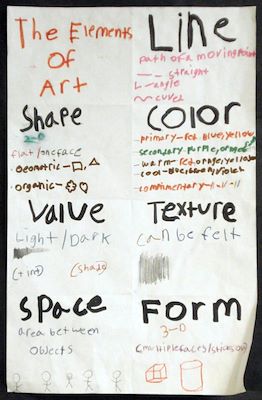 The Elements
Of
Art
Line
Path of a moving Point
straight
L - angle
curved
Shape
2-D
flat/one face
• Geometric -
• organic -
COLOR
primary - Red, Blue, yellow
secondary - Purple, orange, green
warm - red, orange, yellow
Value
Light/Dark
(tint)
(shade)
Texture
can be felt
Space
area between
objects
FORM
3-D